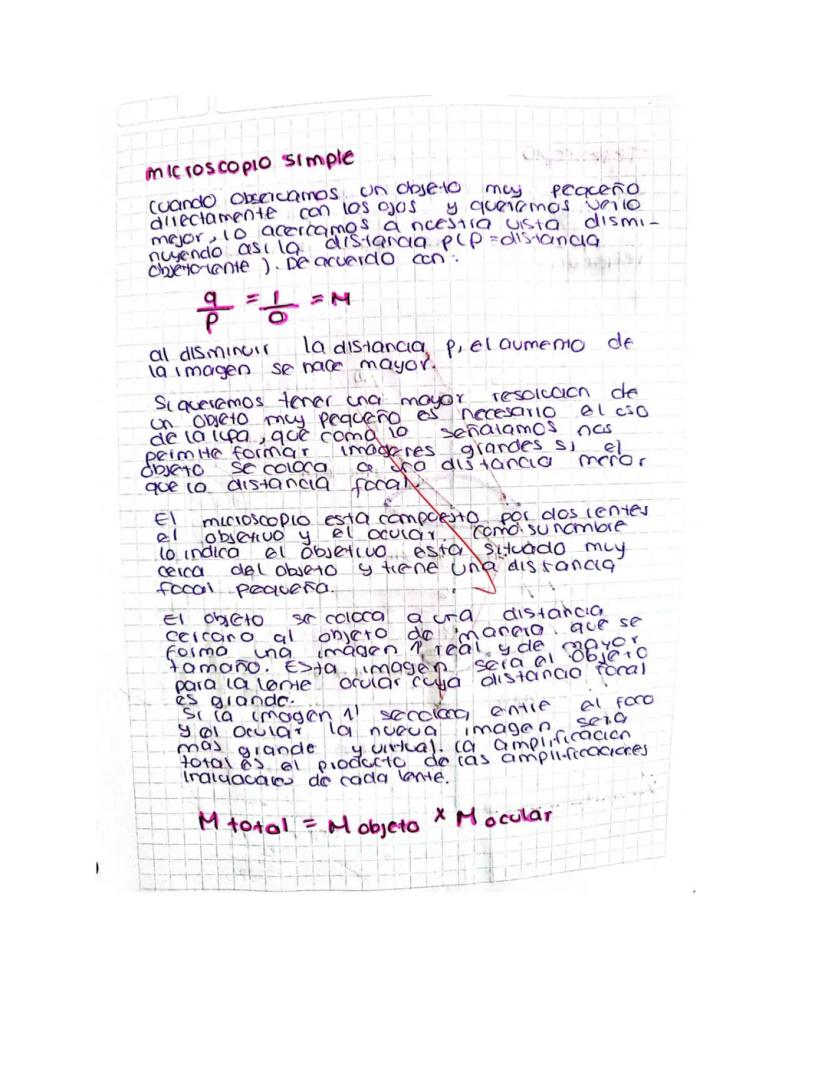 microscopio simple
cuando observamos un objeto muy pequeño
directamente con los ojos y queremos verlo
mejor, lo acercamos a nuestra vista dismi-
nuyendo asi la distancia p(p=distancia
objeto-lente). De acuerdo con:
q/p = 1/0 = M
al disminuir la distancia p, el aumento de
la imagen se hace mayor.
Si queremos tener una mayor resolucion de
un objeto muy pequeño es necesario el uso
de la lupa, que como lo señalamos nos
permite formar imagenes grandes si el
objeto se coloca a una distancia menor
que la distancia focal.
El microscopio esta compuesto por dos lentes
el objetivo y el ocular. Como su nombre
lo indica el objetivo esta situado muy
cerca del objeto y tiene una distancia
focal pequeña.
El objeto se coloca a una distancia
cercana al objeto de manera que se
forma una imagen 1' real y de mayor
tamaño. Esta imagen sera el objeto
para la lente ocular cuya distancia focal
es grande.
Si la imagen 1' se coloca entre el foco
y el ocular la nueva imagen sera
mas grande y virtual. la amplificacion
total es el producto de las amplificaciones
de cada lente.
M total = M objeto x M ocular